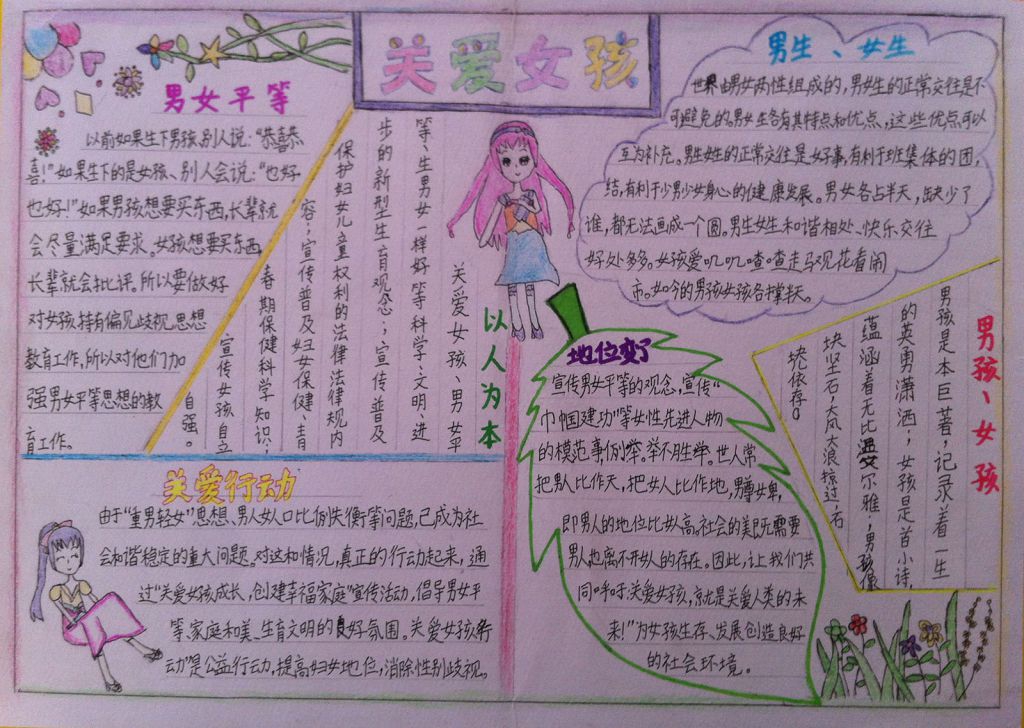 关爱女孩
男女平等
以前如果生下男孩,别人说:“恭喜恭
喜!”如果生下的是女孩、别人会说:“也好
也好!”如果男孩想要买东西,长辈就
会尽量满足要求。女孩想要买东西,
长辈就会批评。所以要做好
对女孩持有偏见歧视思想
教育工作,所以对他们加
强男女平等思想的教
育工作。
以人为本
关爱女孩、男女平
等、生男女一样好等科学、文明、进
步的新型生育观念;宣传普及
保护妇女儿童权利的法律法律规内
容;宣传普及妇女保健、青
春期保健科学知识;
宣传女孩自立
自强。
男生、女生
世界由男女两性组成的,男女生的正常交往是不
可避免的。男女生各有其特点和优点,这些优点可以
互为补充。男生女生的正常交往是好事,有利于班集体的团
结,有利于少男少女身心的健康发展。男女各占半天,缺少了
谁,都无法画成一个圆。男生女生和谐相处、快乐交往
好处多多。女孩爱叽叽喳喳走马观花看闹
市。如今的男孩女孩各撑半天。
男孩、女孩
男孩是本巨著,记录着一生
的英勇潇洒;女孩是首小诗,
蕴涵着无比温文尔雅;男孩像
块坚石,大风大浪掠过,石
块依存。
地位变了
宣传男女平等的观念,宣传“
巾帼建功”等女性先进人物
的模范事例举,举不胜举。世人常
把男人比作天,把女人比作地,男尊女卑,
即男人的地位比女高。社会的美既需要
男人也离不开女人的存在。因此,让我们共
同呼吁:关爱女孩,就是关爱人类的未
来!”为女孩生存、发展创造良好
的社会环境。
关爱行动
由于“重男轻女”思想、男人女人口比例失衡等问题,已成为社
会和谐稳定的重大问题。对这种情况,真正的行动起来,通
过“关爱女孩成长,创建幸福家庭”宣传活动,倡导男女平
等、家庭和美、生育文明的良好氛围。关爱女孩行
动”是公益行动,提高妇女地位,消除性别歧视。